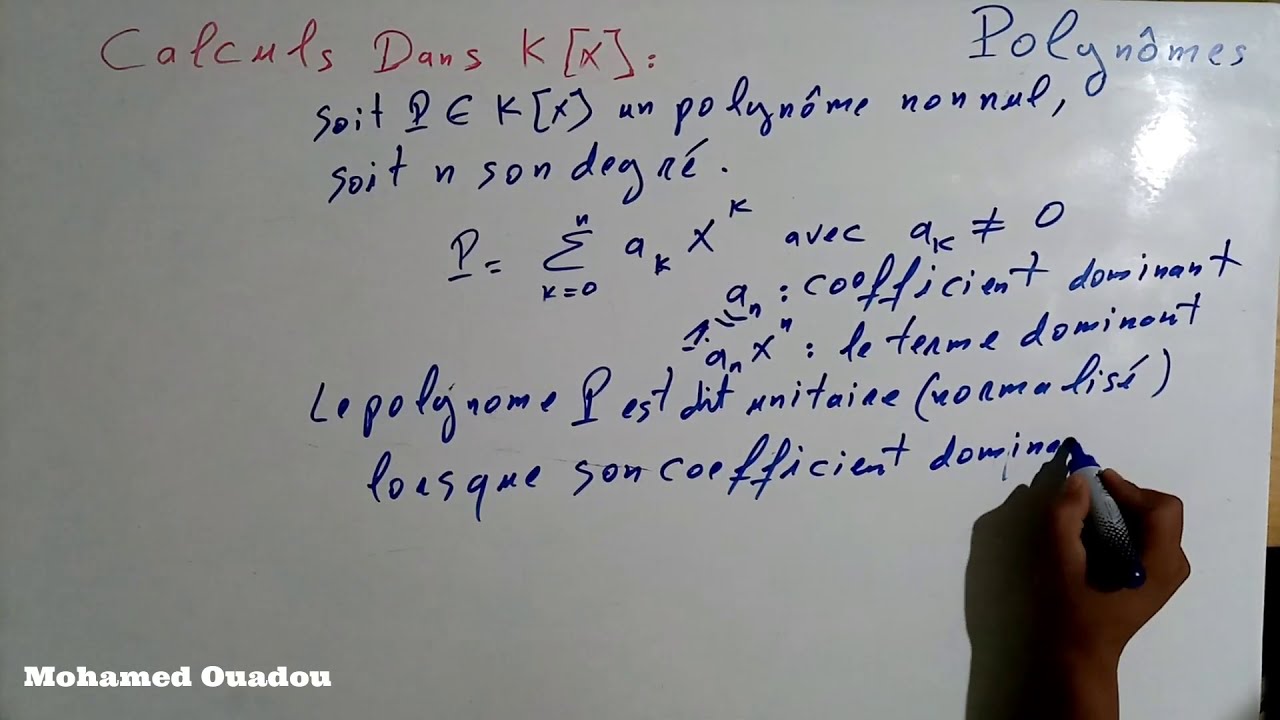 Calculs Dans K[X]:
Polynômes
soit P ∈ K[X] un polynôme non nul,
soit n son degré.
P = ∑_{k=0}^{n} a_k X^k avec a_k ≠ 0
a_n : coefficient dominant
1.
a_n X^n : le terme dominant
Le polynome P est dit unitaire (normalisé)
lorsque son coefficient domina
Mohamed Ouadou